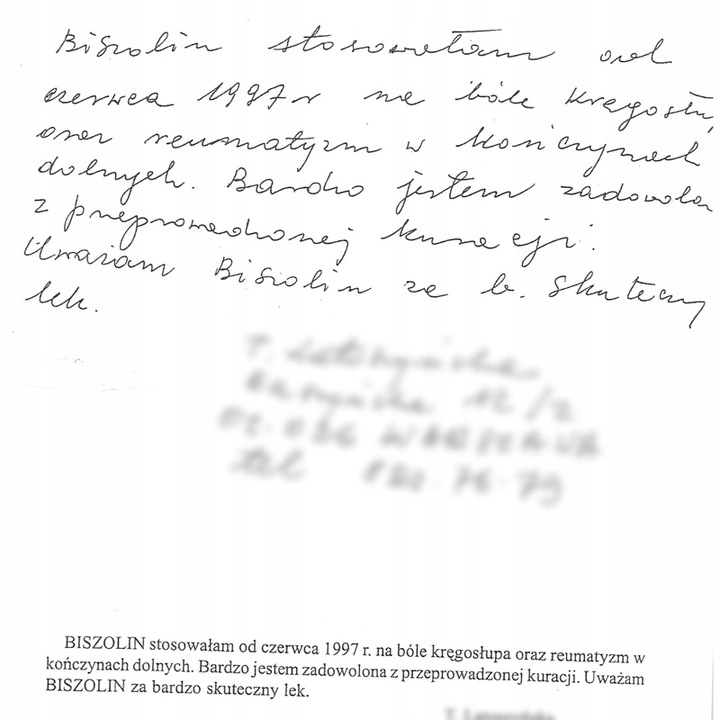 Biszolin stosowałam od
czerwca 1997 r na bóle kręgosłu
oraz reumatyzm w kończynach
dolnych. Bardzo jestem zadowolon
z przeprowadzonej kuracji.
Uważam Biszolin za b. skuteczny
lek.
BISZOLIN stosowałam od czerwca 1997 r. na bóle kręgosłupa oraz reumatyzm w
kończynach dolnych. Bardzo jestem zadowolona z przeprowadzonej kuracji. Uważam
BISZOLIN za bardzo skuteczny lek.